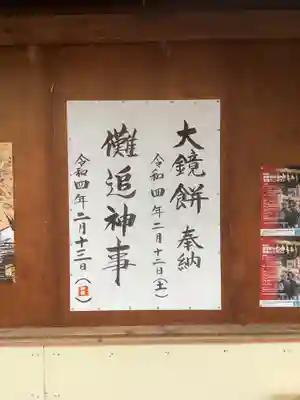 大鏡餅奉納
令和四年二月十二日（土）
儺追神事
令和四年二月十三日（日）